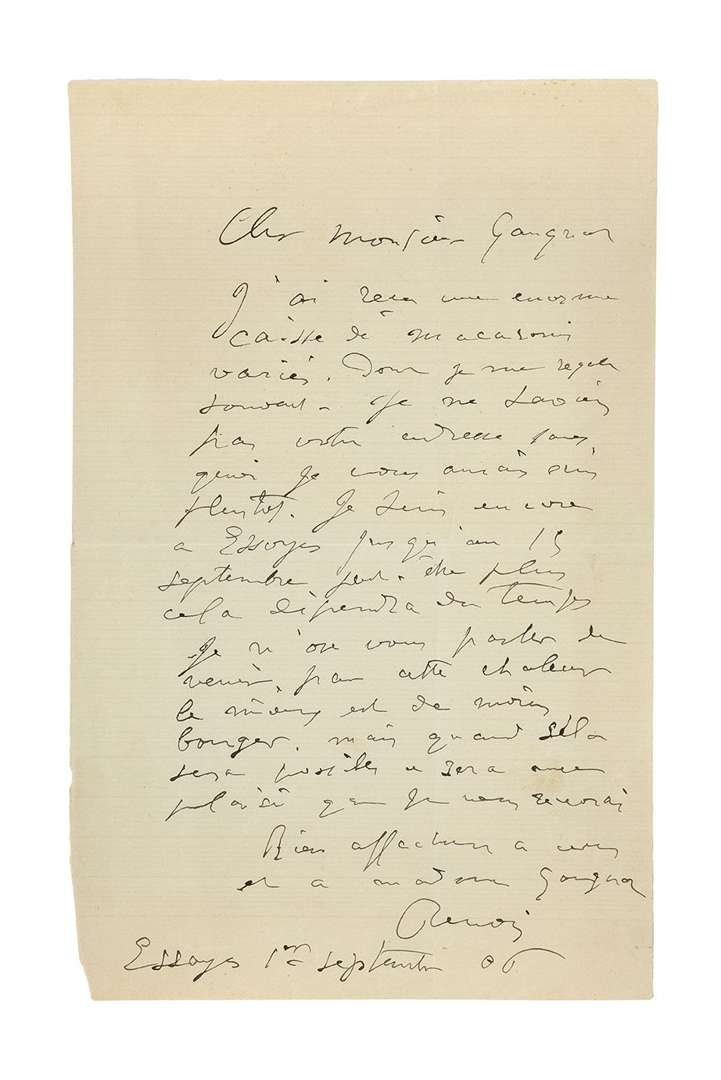 Cher Monsieur Gangnat
J'ai reçu une enorme
caisse de macaronis
variés. Dont je me regale
souvent. Je ne savais
pas votre adresse sans
quoi je vous aurais écris
plutot. Je suis encore
a Essoyes jusqu'au 15
septembre peut-être plus
cela dépendra du temps
Je n'ose vous parler de
venir par cette chaleur
le mieux est de moins
bouger. mais quand cela
sera possible ce sera avec
plaisir que je vous recevrai
Bien affectueux a vous
et a madame Gangnat
Renoir
Essoyes 1er septembre 06